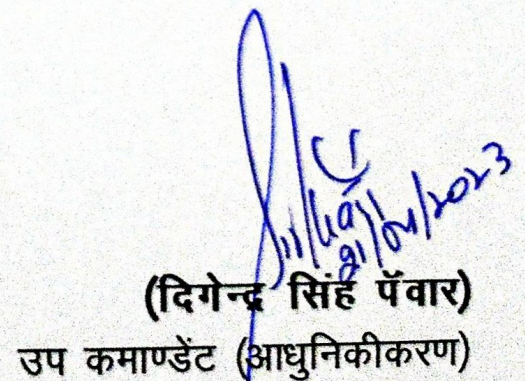 21/04/2023
(दिगेन्द्र सिंह पॅवार)
उप कमाण्डेंट (आधुनिकीकरण)